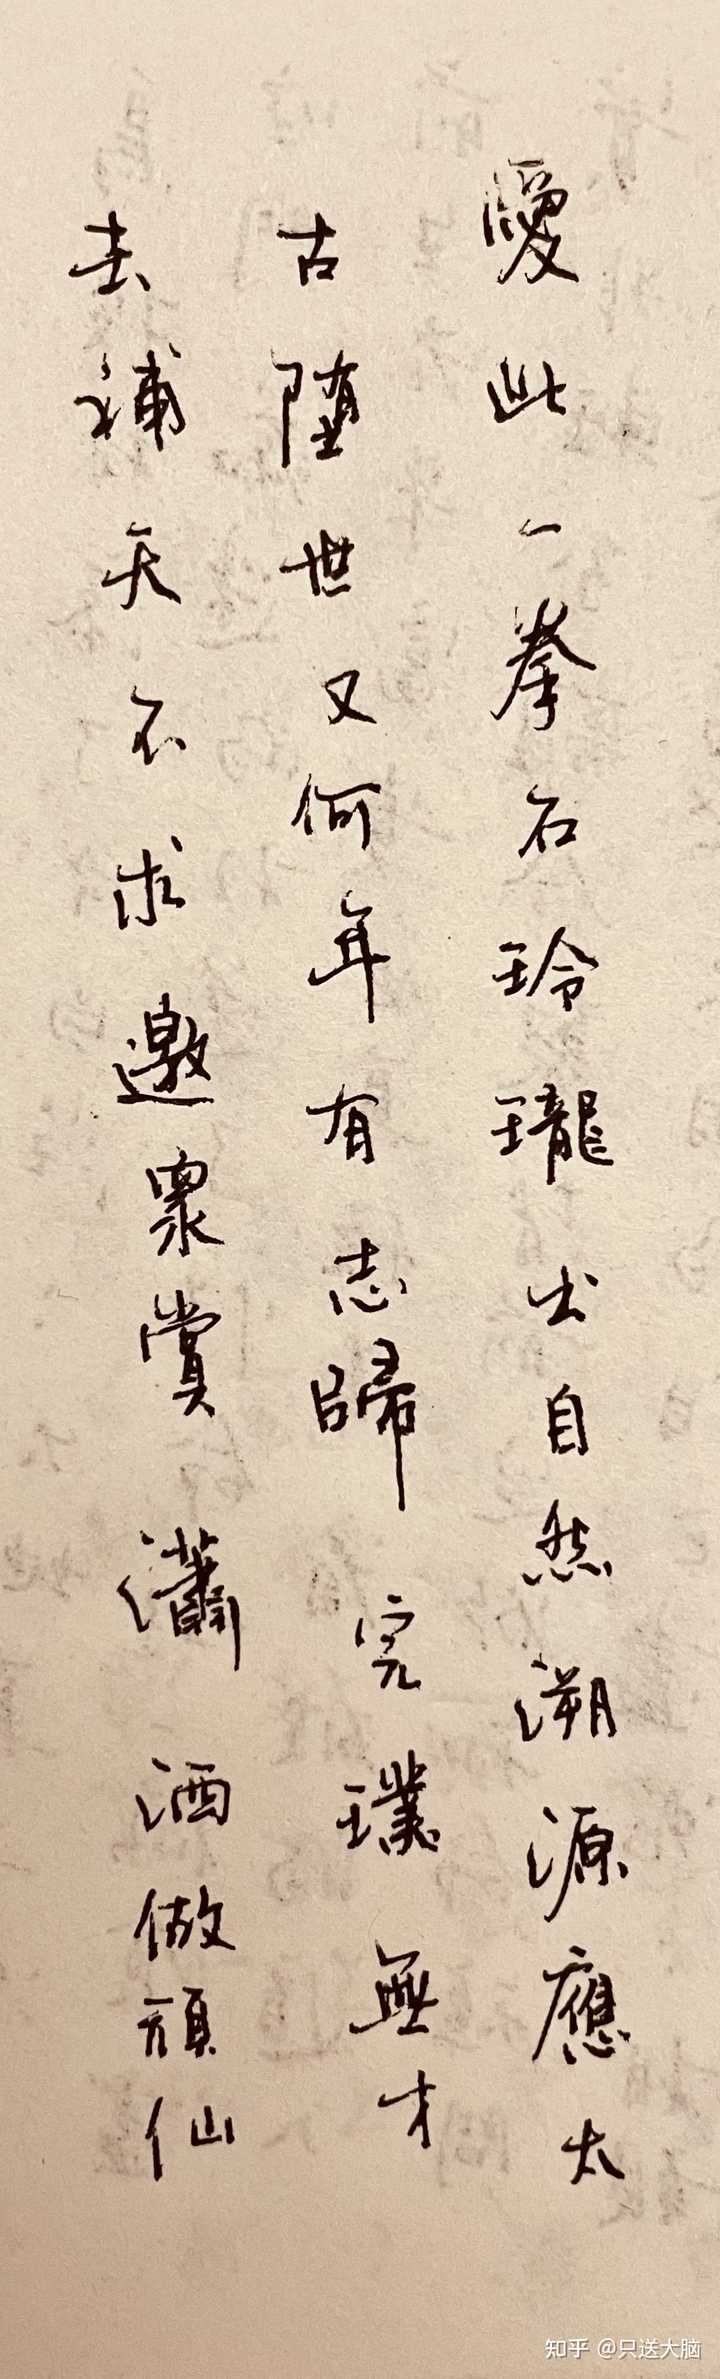 愛此一拳石玲瓏出自然溯源應太
古墮世又何年有志歸完璞無才
去補天不求邀眾賞瀟洒做頑仙
知乎 @只送大脑